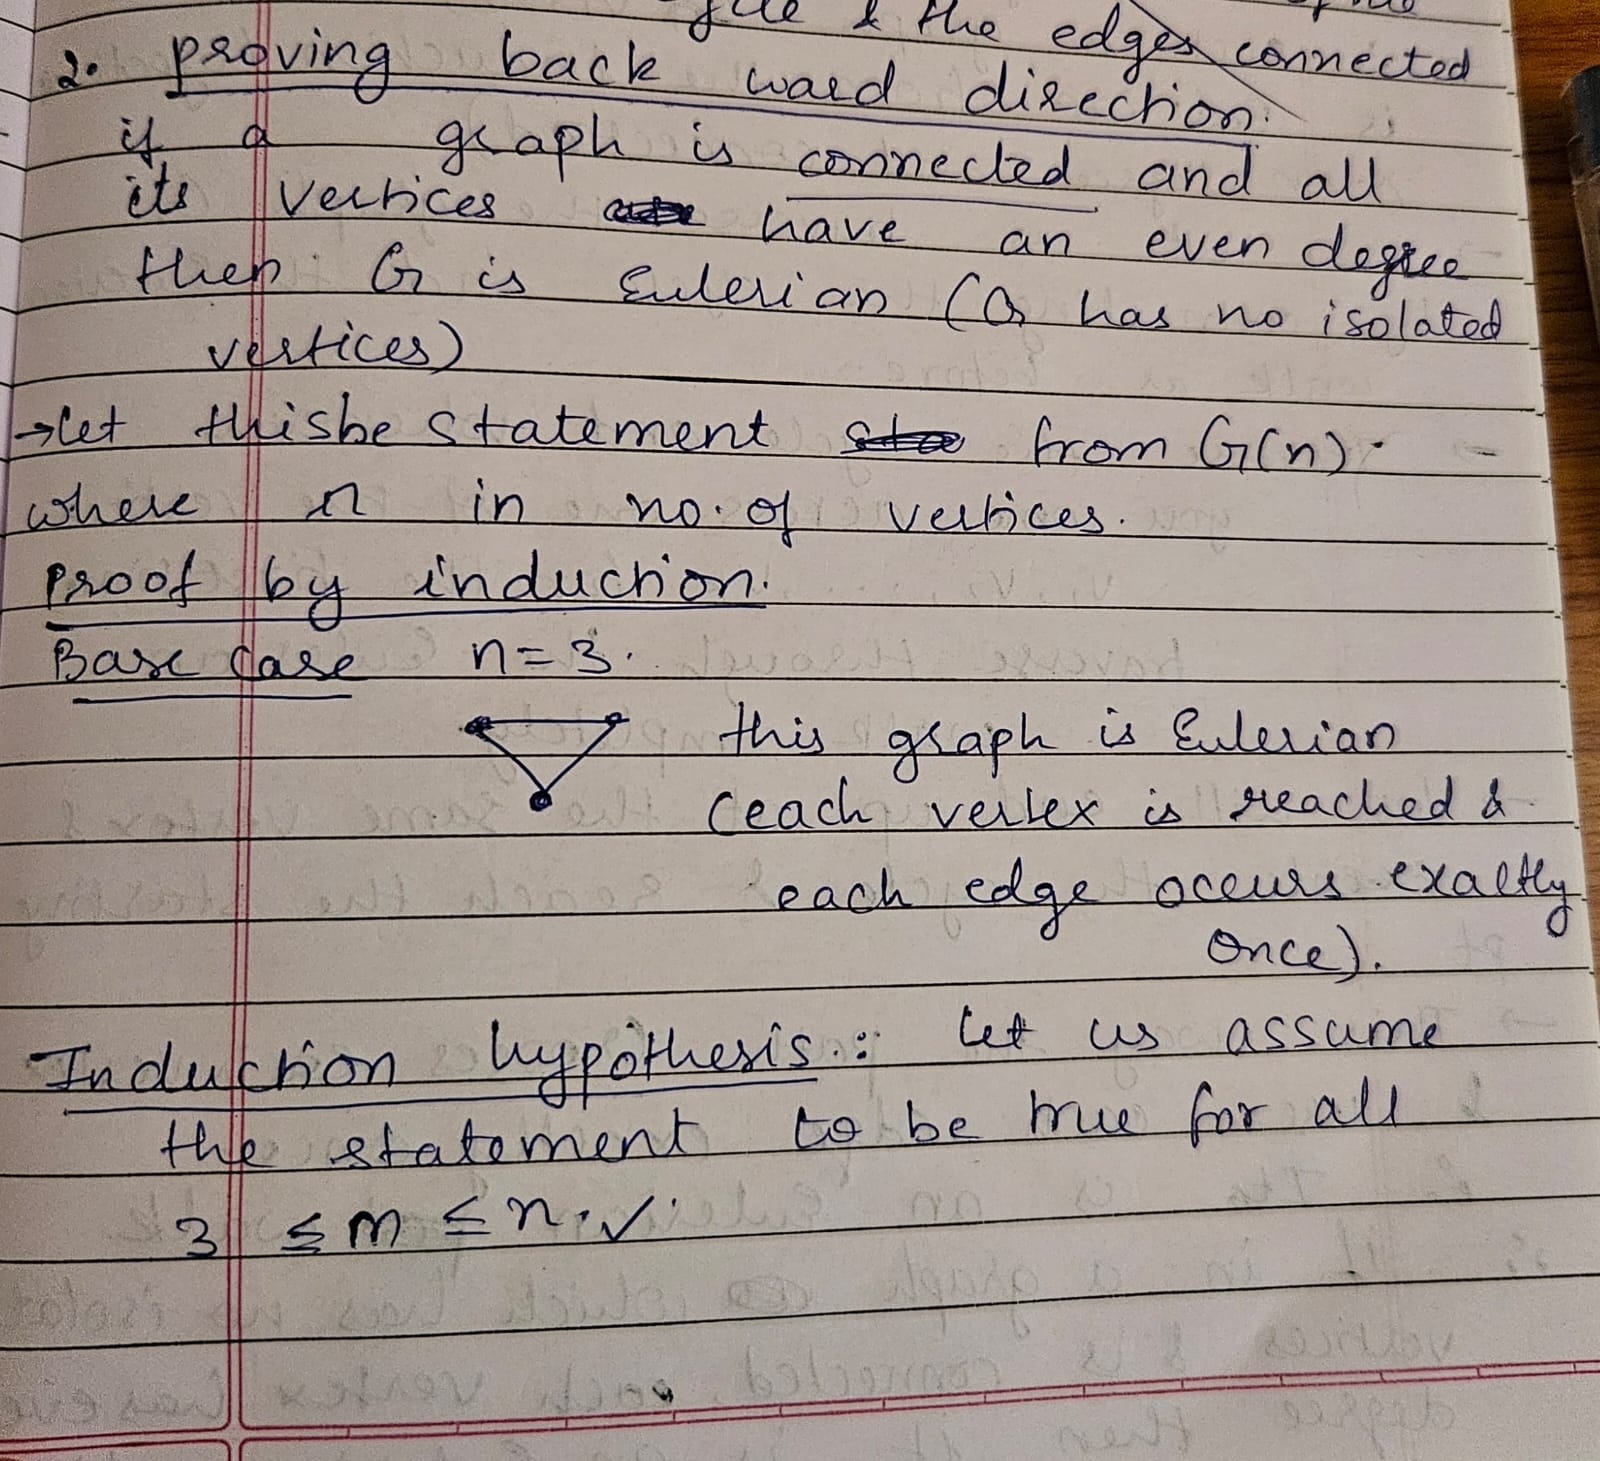 & the edges connected
2. proving back ward direction.
if a graph is connected and all
its vertices have an even degree
then G is Eulerian (G has no isolated
vertices)
→ let this be statement from G(n).
where n in no. of vertices.
Proof by induction.
Base case n = 3.
this graph is Eulerian
(each vertex is reached &
each edge occurs exactly
once).
Induction hypothesis.: let us assume
the statement to be true for all
3 ≤ m ≤ n. ✓